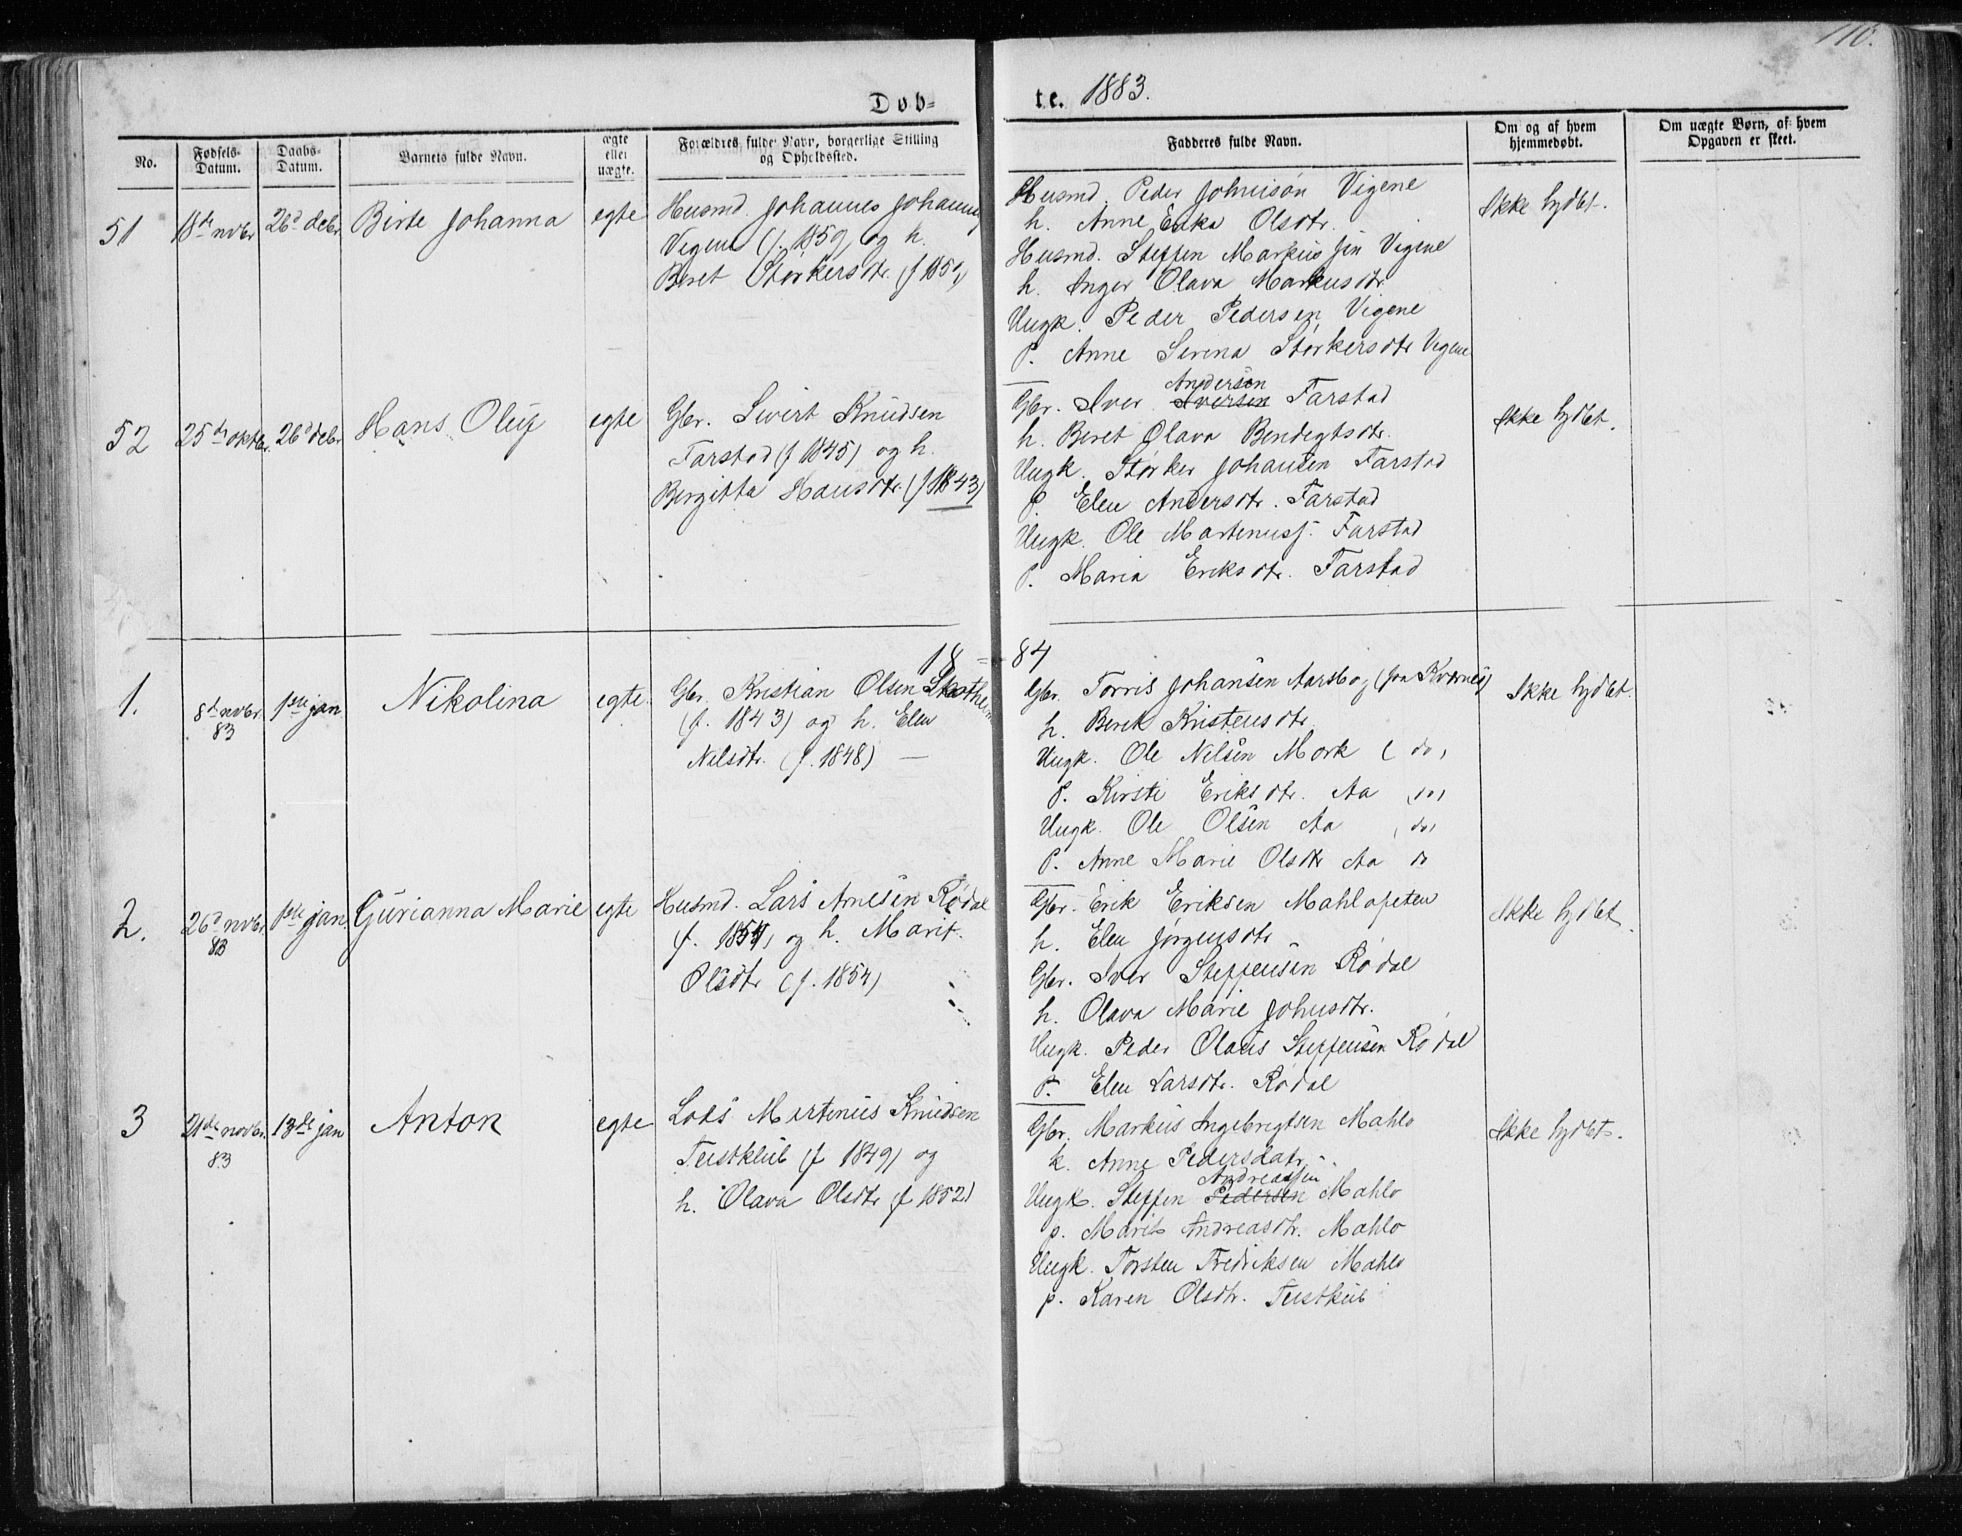 110.
Døb-
te. 1883.
No.
Fødsels-
Datum.
Daabs-
Datum.
Barnets fulde Navn.
ægte
eller
uægte.
Forældres fulde Navn, borgerlige Stilling
og Opholdssted.
Fadderes fulde Navn.
Om og af hvem
hjemmedøbt.
Om uægte Børn, af hvem
Opgaven er skeet.
51
18de novbr
26d debr
Birte Johanna
egte
Husmd. Johannes Johannes
Vigene (f. 1859) og h.
Beret Størkersdtr. (f 185
Husmd. Peder Johnisøn Vigene
h. Anne Erika Olsdtr.
Husmd. Steffen Markussen Vigene
h. Inger Olava Markusdtr
Ungk. Peder Pedersen Vigene
P. Anne Serina Størkersdtr Vigene
Ikke hjdbt.
52
25de oktbr.
26d debr
Hans Oluf
egte
Gbr. Sivert Knudsen
Farstad (f 1845) og h.
Bergitta Hansdtr. (f 1843)
Andersen
Gbr. Iver Iversen Farstad
h. Beret Olava Bendigtsdtr.
Ungk. Størker Johansen Farstad
P. Elen Andersdtr. Farstad
Ungk. Ole Martinusf. Farstad
P. Maria Eriksdtr. Farstad
Ikke hjdbt.
18 - 84
1.
8d novbr.
83
1ste jan
Nikolina
egte.
Gbr. Kristian Olsen Skottheim
(f. 1843) og h. Elen
Nilsdtr. (f. 1848) —
Gbr. Torris Johansen Aarsbog (fra Kvernæs)
h. Berit Kristensdtr.
Ungk. Ole Nilsen Mork (do)
P. Kirsti Eriksdtr. Aa (do)
Ungk. Ole Olsen Aa (do)
P. Anne Marie Olsdtr Aa do
Ikke hjdbt.
2.
26d novbr.
83
1ste jan.
Gurianna Marie
egte
Husmd. Lars Arnesen Rødal
(f. 1851) og h. Marit
Olsdtr (f. 1854)
Gbr. Erik Eriksen Mahlapeten
h. Elen Jørgensdtr
Gbr. Iver Steffensen Rødal
h. Olava Marie Johnsdtr.
Ungk. Peder Olaus Steffensen Rødal
P. Elen Larsdtr. Rødal
Ikke hjdbt.
3
21de novbr.
83
13de jan
Anton
egte
Lods Martinus Knudsen
Teistklub (f 1849) og
h. Olava Olsdtr (f 1852)
Gbr. Markus Ingebrigtsen Mahlo
k. Anne Pedersdatr.
Andreassen
Ungk. Steffen Pedersen Mahlo
p. Marit Andreasdtr. Mahlo
Ungk. Torsten Fredriksen Mahlo
p. Karen Olsdtr. Teistklub
Ikke hjdbt.